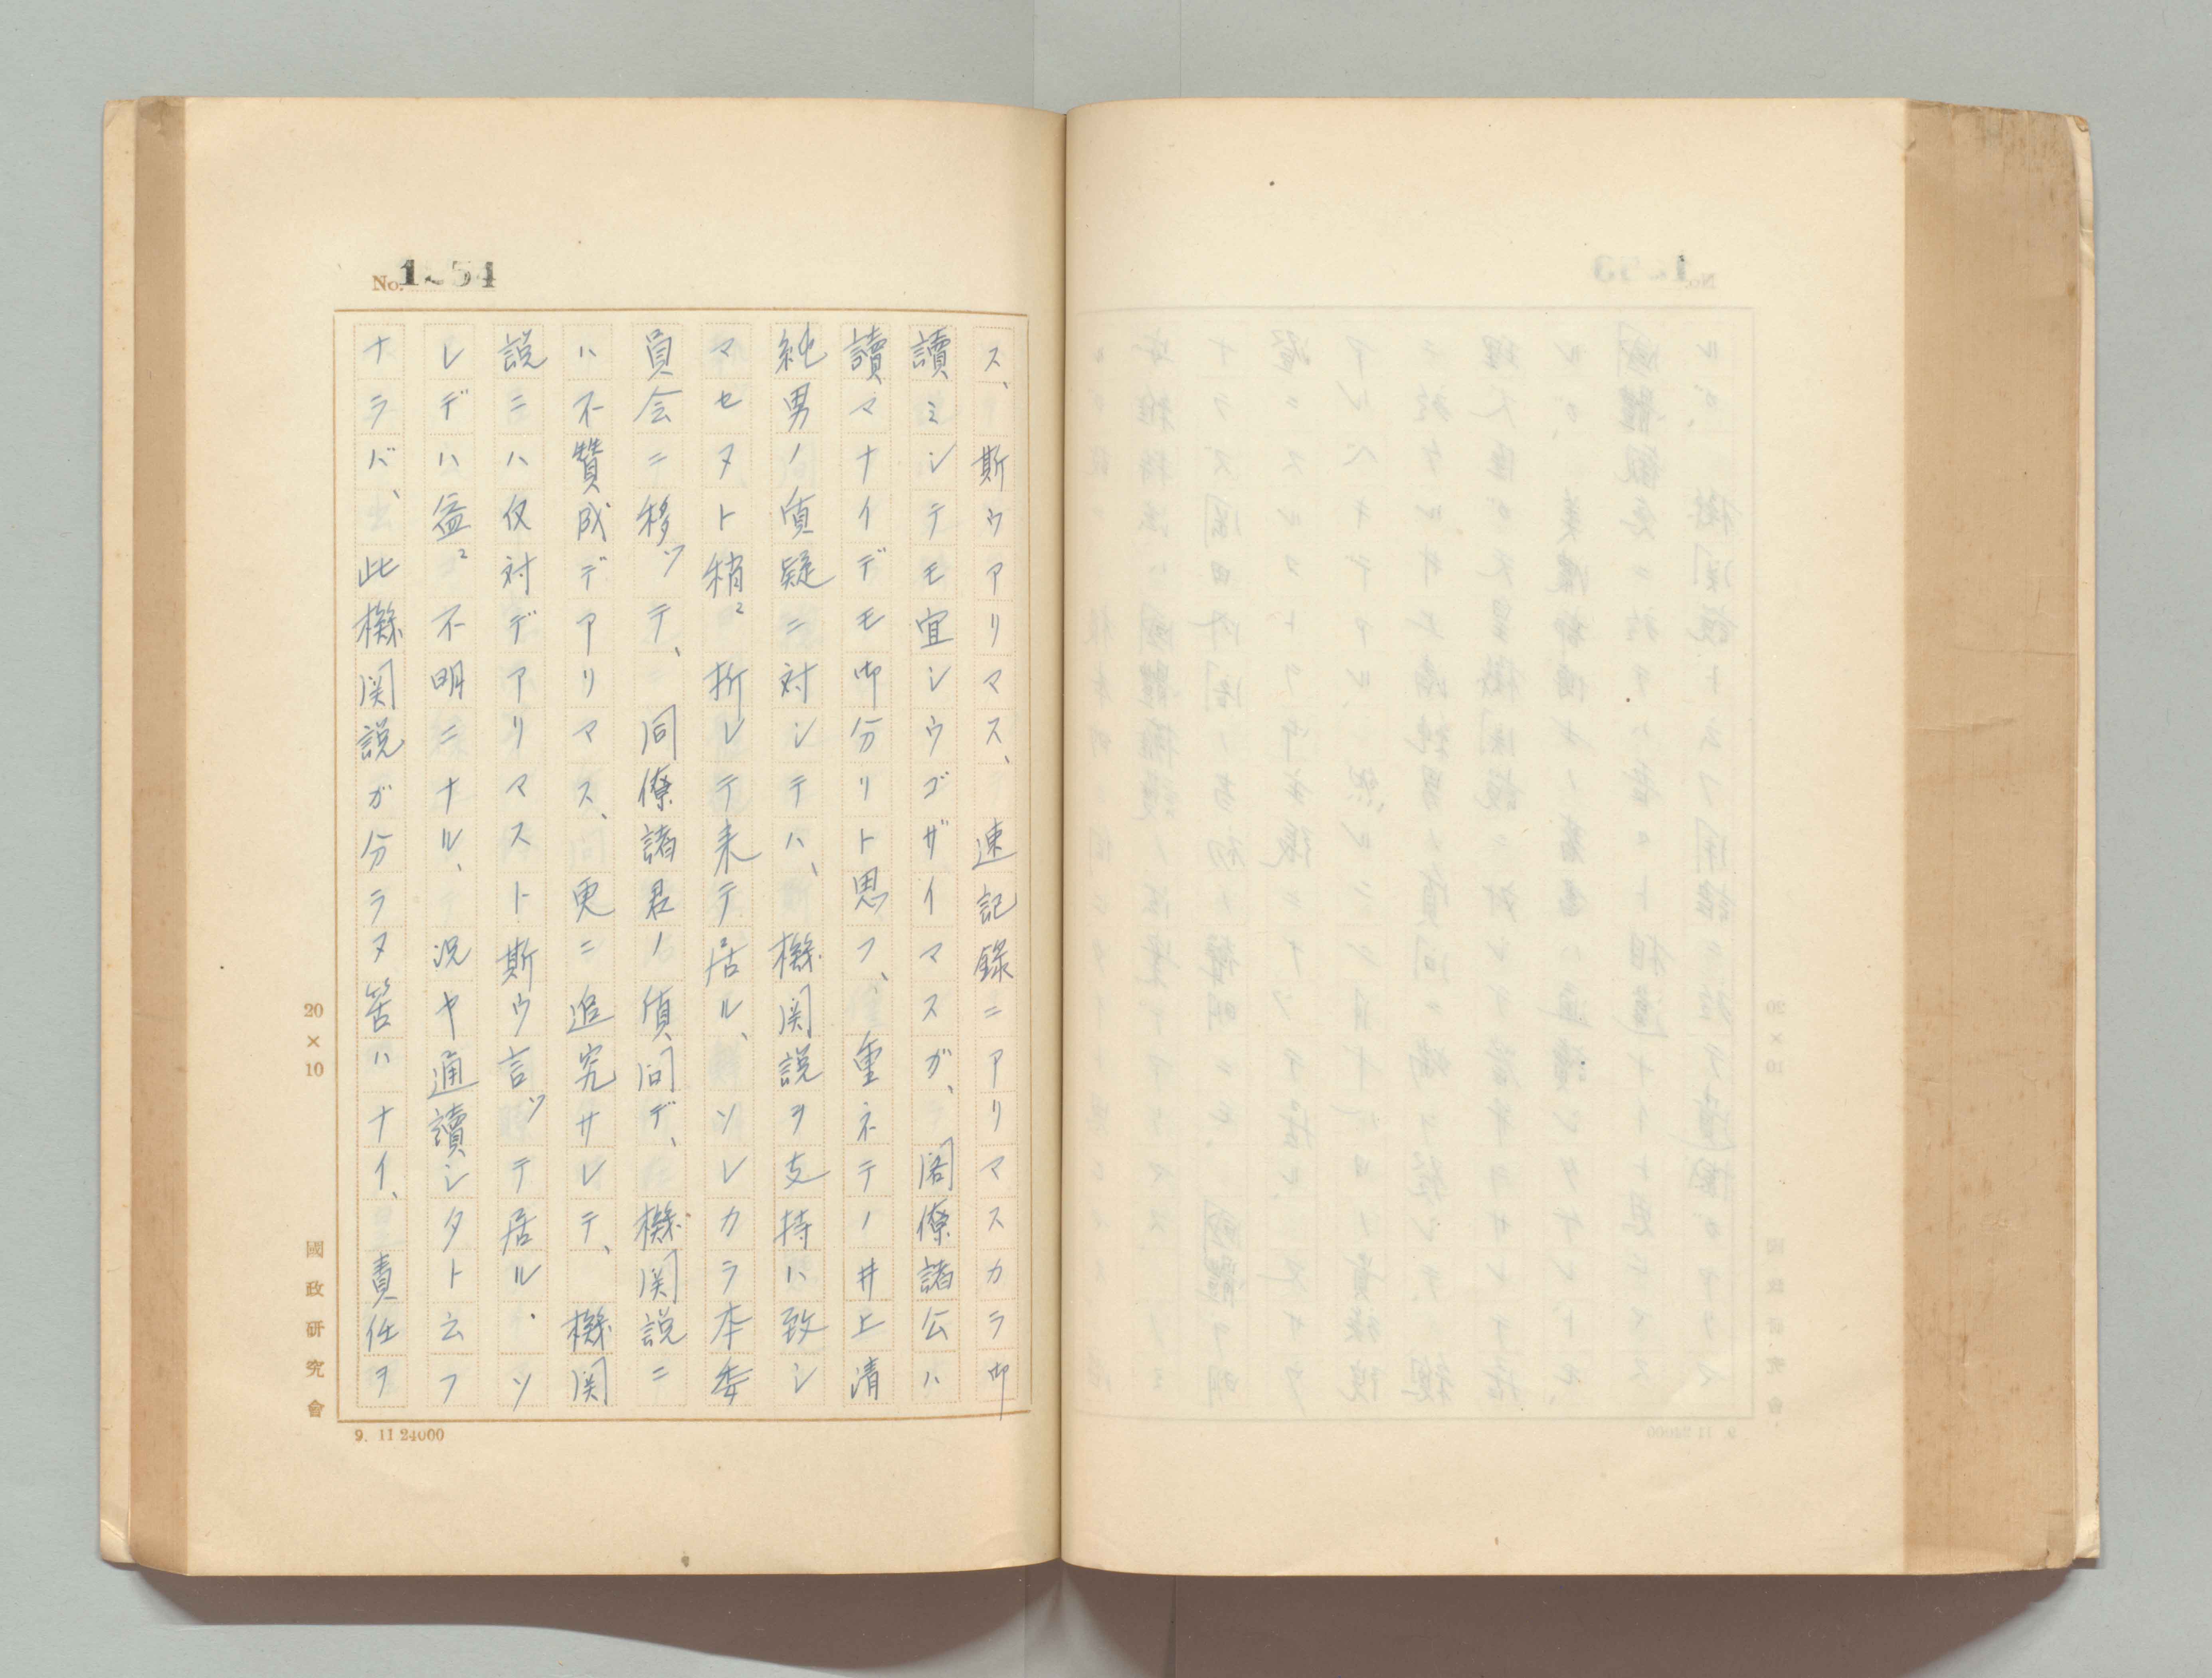 No. 1 54
ス、斯ウアリマス、速記錄ニアリマスカラ御
讀ミシテモ宜シウゴザイマスガ、閣僚諸公ハ
讀マナイデモ御分リト思フ、重ネテノ井上清
純男ノ質疑ニ対シテハ、機関説ヲ支持ハ致シ
マセヌト稍〻折レテ来テ居ル、ソレカラ本委
員会ニ移ッテ、同僚諸君ノ質問デ、機関説ニ
ハ不贊成デアリマス、更ニ追究サレテ、機関
説ニハ反対デアリマスト斯ウ言ッテ居ル、ソ
レデハ益〻不明ニナル、況ヤ通讀シタト云フ
ナラバ、此機関説ガ分ラヌ筈ハナイ、責任ヲ
20×10
國政研究會
9. 11 24000